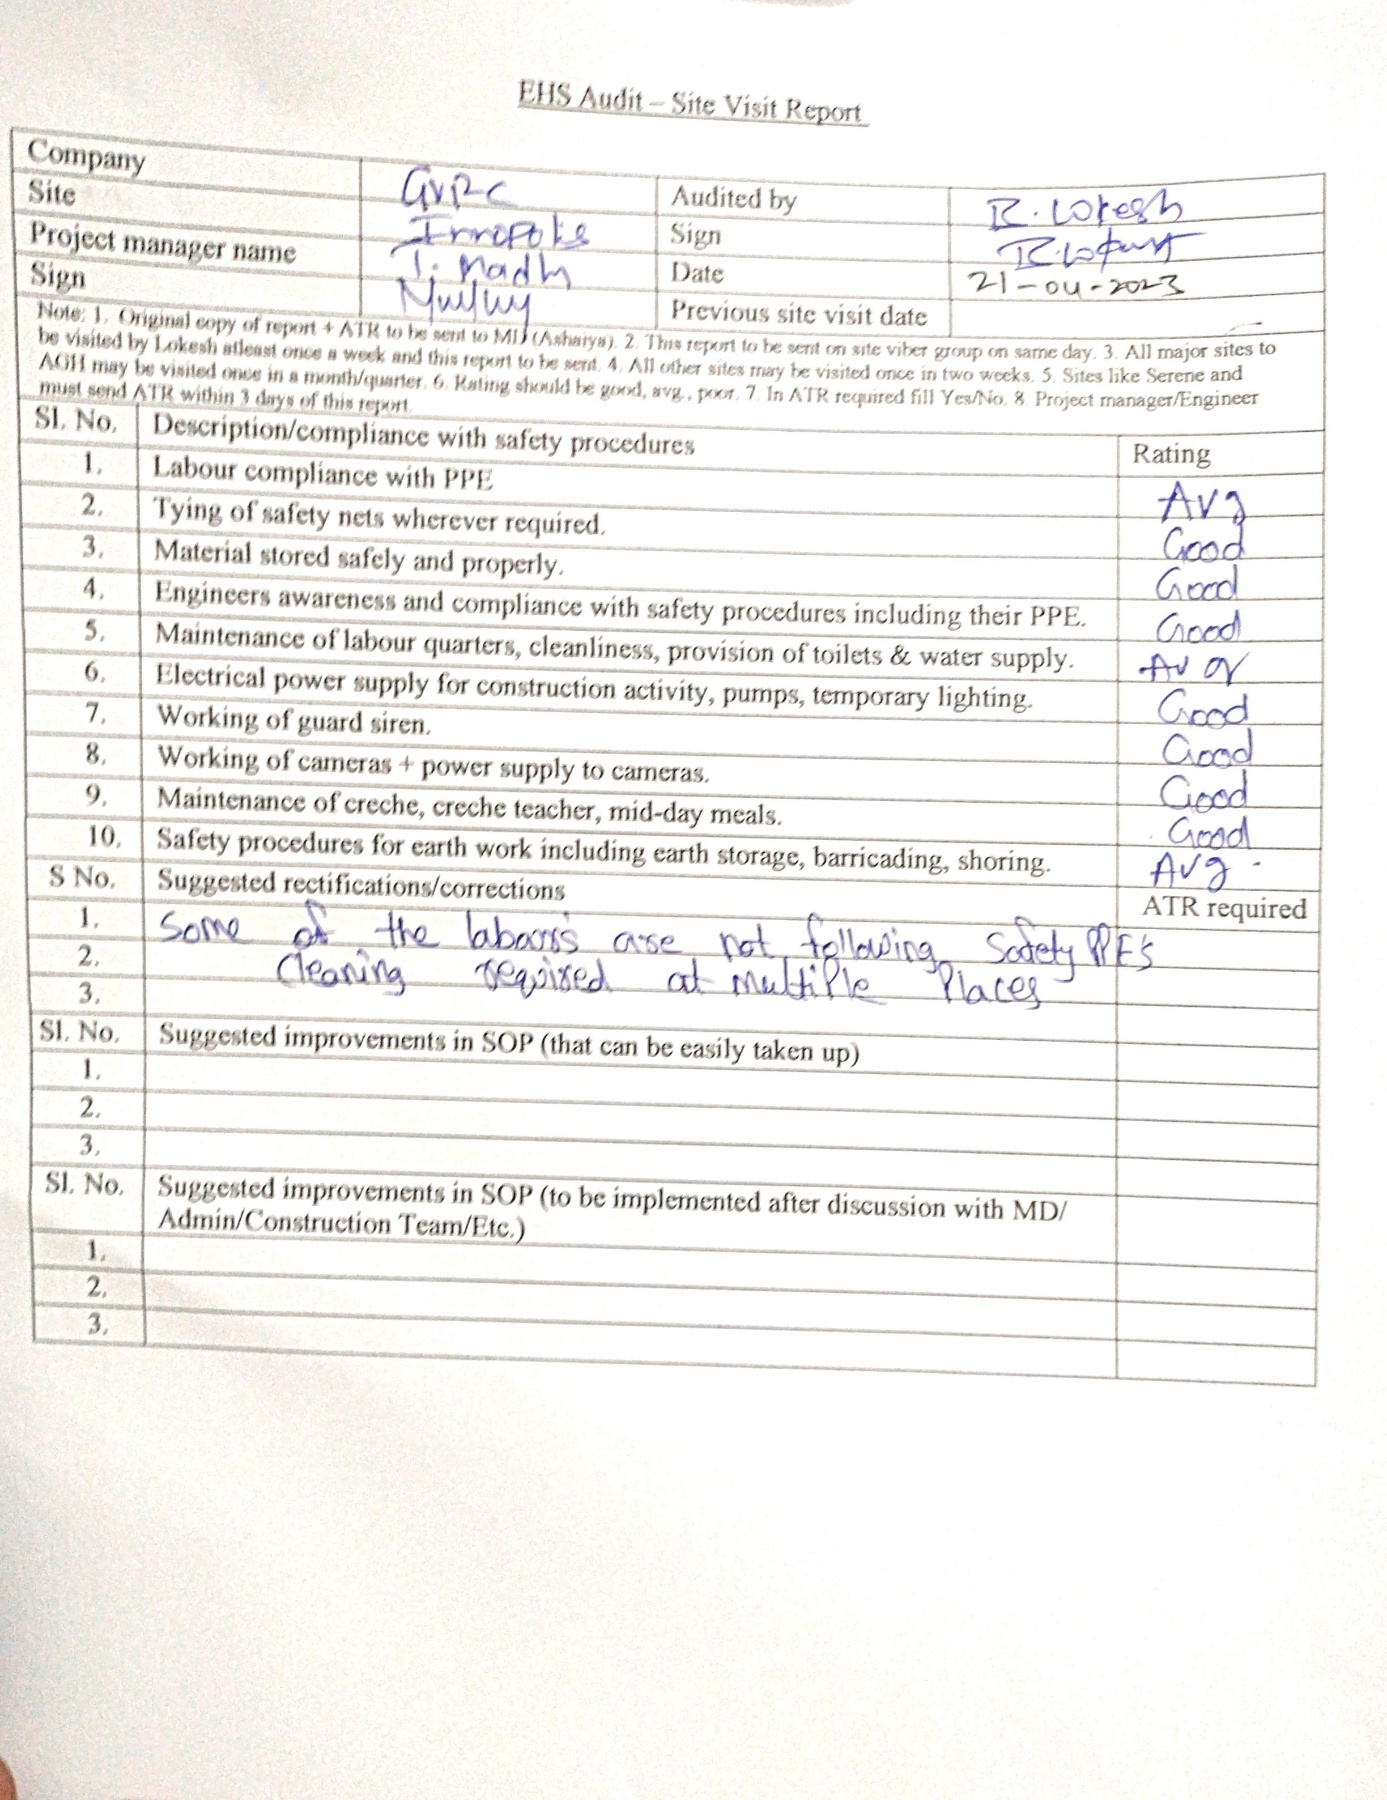 EHS Audit – Site Visit Report
Company GVRC Audited by R. Lokesh
Site Innopolis Sign
Project manager name T. Madh Date 21-04-2023
Sign Previous site visit date –
Note: 1. Original copy of report + ATR to be sent to MD (Ashaiya). 2. This report to be sent on site viber group on same day. 3. All major sites to
be visited by Lokesh atleast once a week and this report to be sent. 4. All other sites may be visited once in two weeks. 5. Sites like Serene and
AGH may be visited once in a month/quarter. 6. Rating should be good, avg., poor. 7. In ATR required fill Yes/No. 8. Project manager/Engineer
must send ATR within 3 days of this report.
Sl. No. Description/compliance with safety procedures Rating
1. Labour compliance with PPE Avg
2. Tying of safety nets wherever required. Good
3. Material stored safely and properly. Good
4. Engineers awareness and compliance with safety procedures including their PPE. Good
5. Maintenance of labour quarters, cleanliness, provision of toilets & water supply. Avg
6. Electrical power supply for construction activity, pumps, temporary lighting. Good
7. Working of guard siren. Good
8. Working of cameras + power supply to cameras. Good
9. Maintenance of creche, creche teacher, mid-day meals. Good
10. Safety procedures for earth work including earth storage, barricading, shoring. Avg
S No. Suggested rectifications/corrections ATR required
1. Some of the labours are not following Safety PPE's
2. Cleaning required at multiple Places
3.
Sl. No. Suggested improvements in SOP (that can be easily taken up)
1.
2.
3.
Sl. No. Suggested improvements in SOP (to be implemented after discussion with MD/
Admin/Construction Team/Etc.)
1.
2.
3.